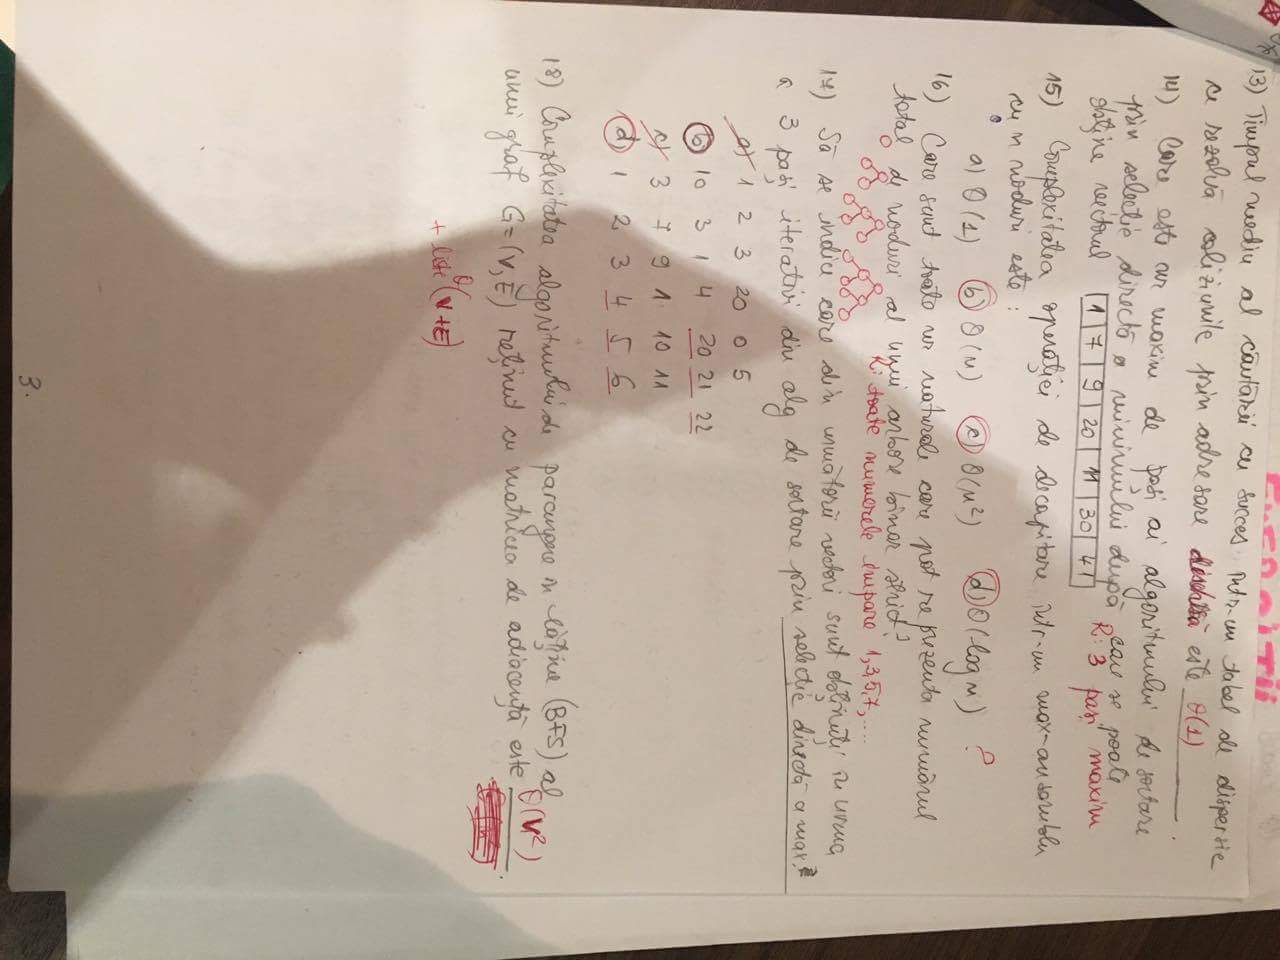 EXERCIȚII
13) Timpul mediu al căutării cu succes într-un tabel de dispersie
ce rezolvă coliziunile prin adresare deschisă este θ(1).
14) Care este nr maxim de pași ai algoritmului de sortare
prin selecție directă a minimului după care se poate
obține vectorul 1 7 9 20 11 30 41 R: 3 pași maxim
15) Complexitatea operației de decapitare într-un max-ansamblu
cu n noduri este:
a) O(1) b) O(n) c) O(n²) d) O(log n) ?
16) Care sunt toate nr naturale care pot reprezenta numărul
total de noduri al unui arbore binar strict?
R: toate numerele impare 1,3,5,7,....
17) Să se indice care din următorii vectori sunt obținuți în urma
a 3 pași iterativi din alg de sortare prin selecție directă a max.?
a) 1 2 3 20 0 5
b) 10 3 1 4 20 21 22
c) 3 7 9 1 10 11
d) 1 2 3 4 5 6
18) Complexitatea algoritmului de parcurgere în lățime (BFS) al
unui graf G=(V,E) reținut cu matricea de adiacență este θ(V²).
+ liste θ(V+E)
3.